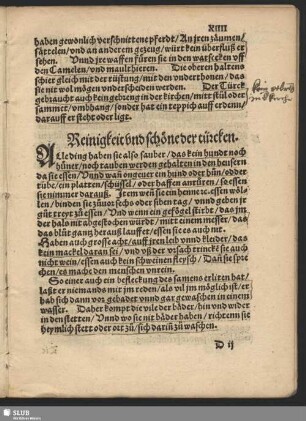 XIIII
haben gewonlich verschnittene pferdt / An jren zäumen /
sättelen / vnd an anderem gezeug / würt kein überfluß er
sehen. Vnnd jre waffen füren sie in den watsecken vff
den Camelen / vnd maulthieren. Die oberen haltens
schier gleich mit der rüstung / mit den vnderthonen / das
sie nit wol mögen vnderscheiden werden. Der Türck
gebraucht auch kein gebreng in der kirchen / mitt stül oder
sammet / vmbhang / sonder hat ein teppich auff erden /
darauff er steht oder ligt.
Reinigkeit vnd schöne der türcken.
Alle ding haben sie also sauber / das kein hundt noch
hüner / noch tauben werden gehalten in den heusern
da sie essen / Vnnd wañ ongeuer ein hund oder hůn / od der
rübe / ein platten / schüssel / oder haffen anrüren / so essen
sie nimmer darauß. Jtem wen sie ein henne ic essen wölle
binden sie zůuor sechs oder siben tag / vnnd geben jr
gůt treyt zů essen / Vnd wenn ein gefögel stirbt / das jm
der halß nit abgestochen würd / mitt einem messer / das
das blůt gantz herauß lauffet / essen sie es auch nit.
Haben auch grosse acht / auff jren leib vnnd kleyder / das
kein mackel daran sei / vnd vß der vrsach trincke sie auch
nicht wein / essen auch kein schwein fleysch / Dañ sie spre
chen / es mache den menschen vnrein.
So einer auch ein befleckung des samens erliten hat /
laßt er niemands mit jm reden / als vil jm möglich ist / er
hab sich dann vor gebadet vnnd gar gewaschen in einem
wasser. Daher kompt die vile der bäder / hin vnd wider
in den stetten / Vnnd wo sie nit bäder haben / richten sie
heymlich stett oder ort zů / sich dariñ zů waschen.
D ij
SLUB